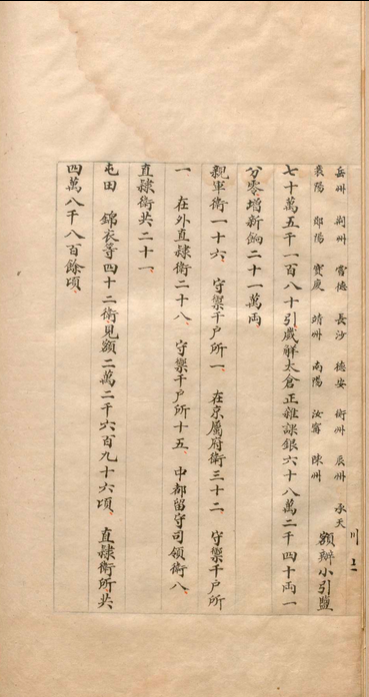 岳州 荆州 常德 長沙 德安 衡州 辰州 承天
襄陽 鄖陽 寶慶 靖州 南陽 汝寧 陳州
額辦小引鹽
七十萬五千一百八十引歲解太倉正雜課銀六十八萬二千四十両一
分零增新餉二十一萬両
親軍衛一十六 守禦千户所一 在京屬府衛三十二 守禦千户所
一 在外直隸衛二十八 守禦千户所十五 中都留守司領衛八
直隸衛共二十一
屯田 錦衣等四十二衛見額二萬二千六百九十六頃 直隸衛所共
四萬八千八百餘頃